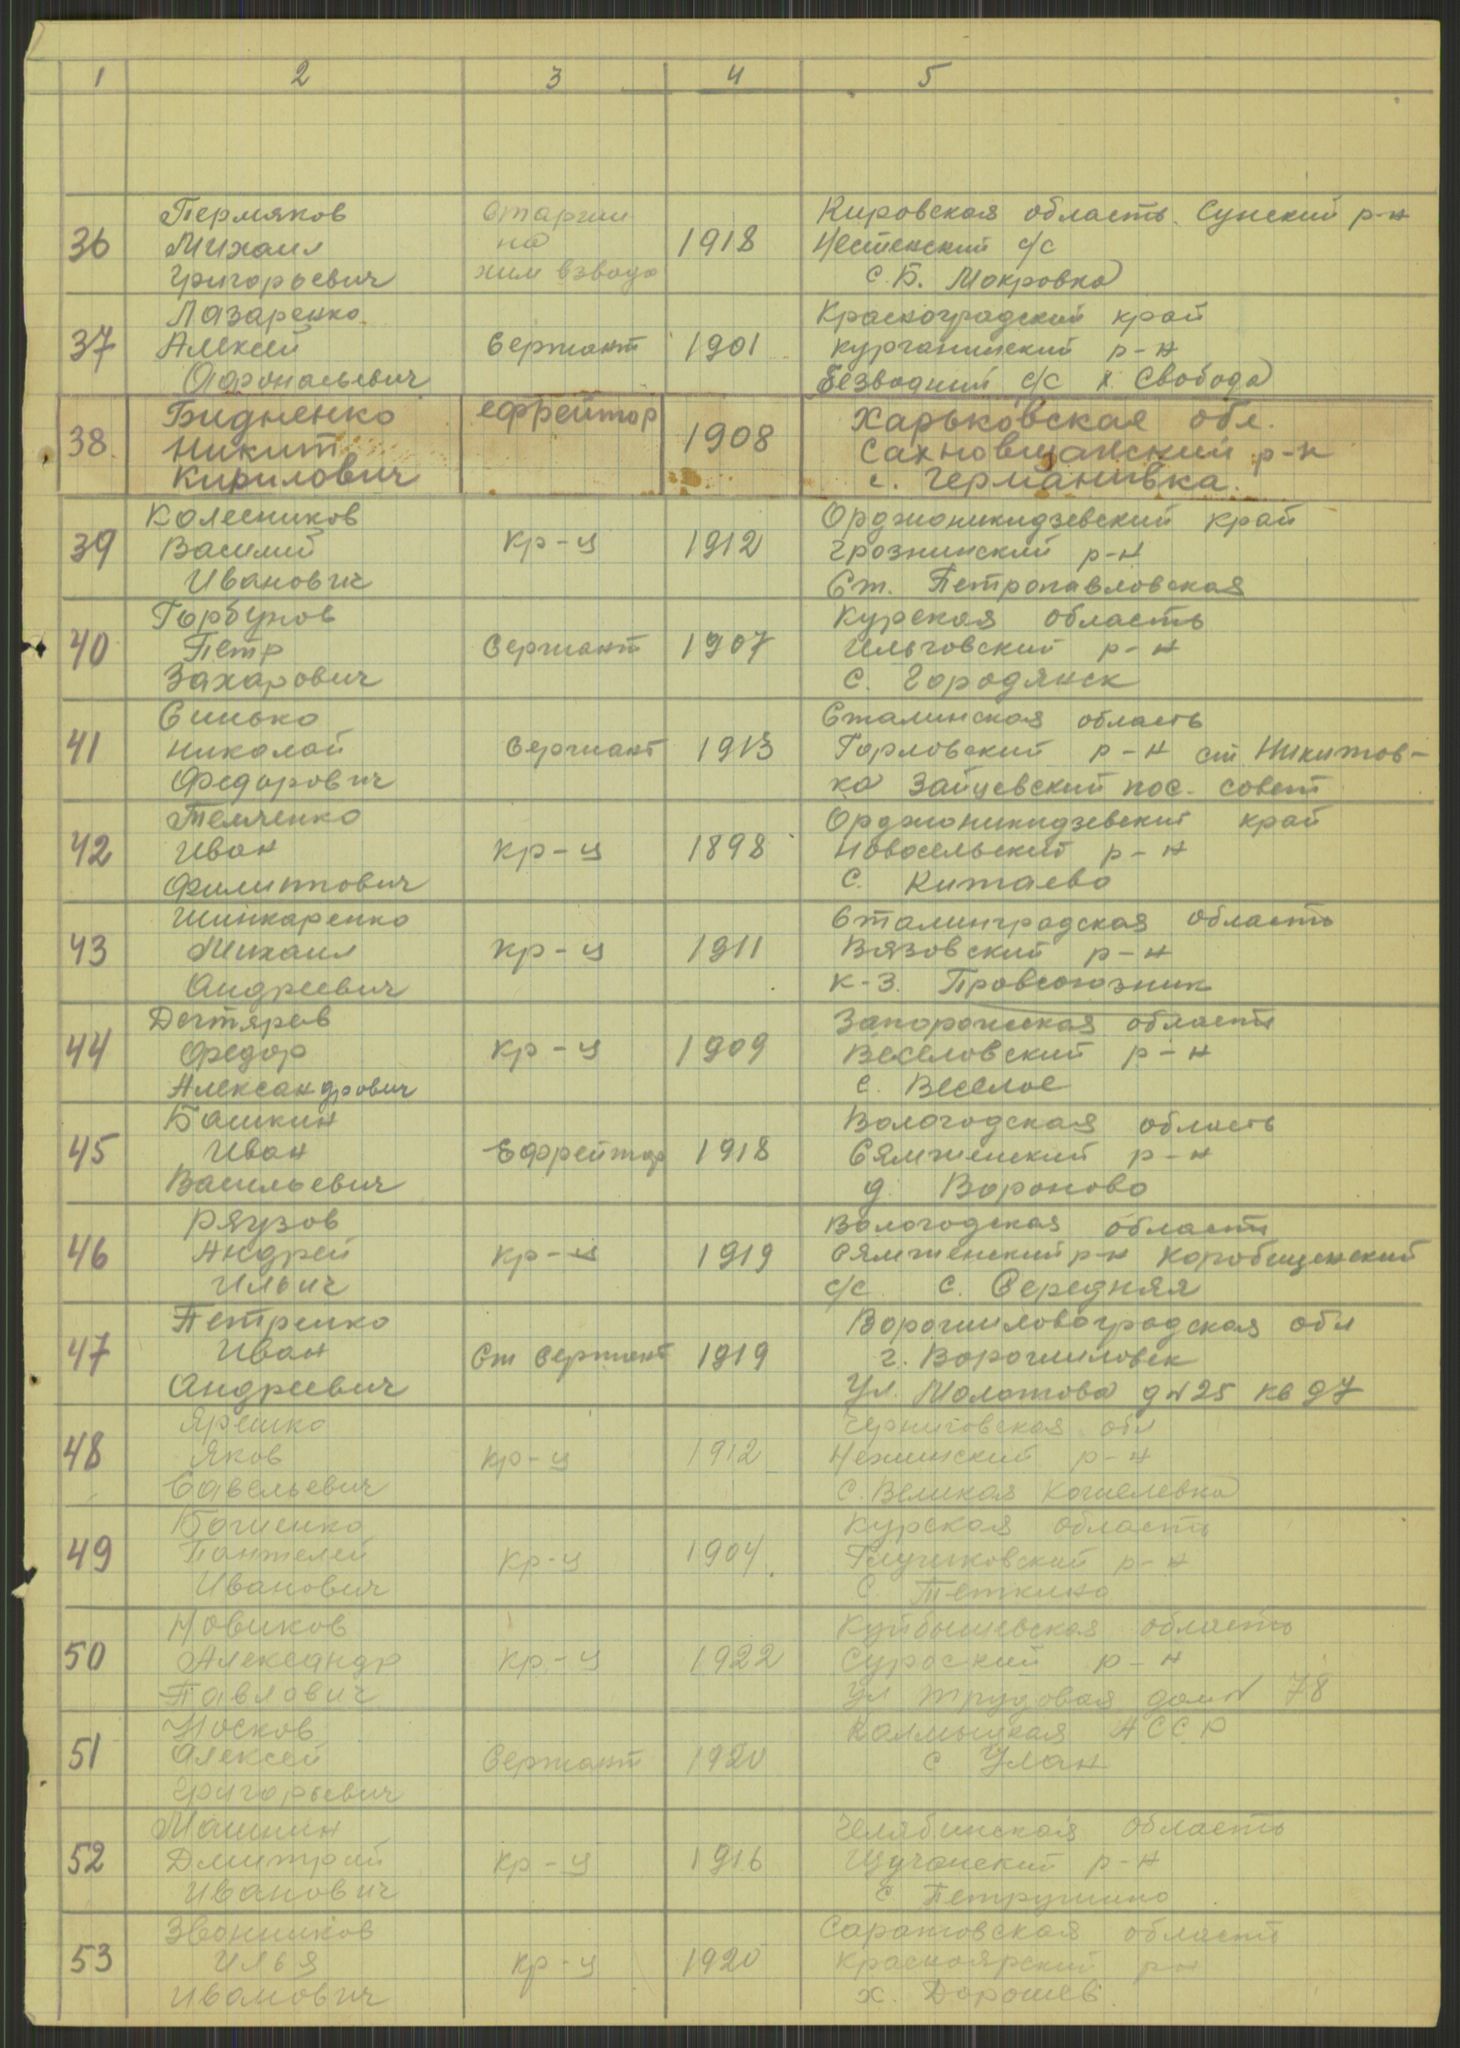 1 2 3 4 5
Пермяков Старшин Кировская область. Сунский р-н
36 Михаил на 1918 с/с
Григорьевич хим взвода с. Б. Мокровка
Лазаренко Красноградский край
37 Алексей Сержант 1901 курганинский р-н
Афонасьевич Безводний с/с х. Свобода
Бидненко ефрейтор Харьковская обл.
38 Никит 1908 Сахновщанский р-н
Кирилович с. Германивка.
Колесников Орджоникидзевский край
39 Василий кр-ц 1912 грознинский р-н
Иванович Ст. Петропавловская
Горбунов Курская область
40 Петр Сержант 1907 Ильговский р-н
Захарович с. Городянск
Синько Сталинская область
41 Николай Сержант 1913 Горловский р-н ст Никитов-
Федорович ка Зайцевский пос. совет
Темченко Орджоникидзевский край
42 Иван кр-ц 1898 Новосельский р-н
Филиппович с. Китаево
Шинкаренко Сталинградская область
43 Михаил кр-ц 1911 Вязовский р-н
Андреевич к-з. Провсоюзник
Дегтярев Запорожская область
44 Федор кр-ц 1909 Веселовский р-н
Александрович с. Веселое
Башкин Вологодская область
45 Иван Ефрейтор 1918 Сямженский р-н
Васильевич д. Вороново
Ряузов Вологодская область
46 Андрей кр-ц 1919 Сямженский р-н Коробищенский
Ильич с/с с. Середняя
Петренко Ворошиловоградская обл
47 Иван Ст Сержант 1919 г. Ворошиловск
Андреевич Ул. Молотова д№25 кв 97
Ярешко Черниговская обл
48 Яков кр-ц 1912 Нежинский р-н
Савельевич с. Великая Кошелевка
Боженко Курская область
49 Пантелей кр-ц 1904 Глушковский р-н
Иванович с. Теткино
Новиков Куйбышевская область
50 Александр кр-ц 1922 р-н
Павлович ул трудовая дом№ 78
Носков Калмыцкая АССР
51 Алексей Сержант 1920 с Улан
Григорьевич
Машнин Челябинская область
52 Дмитрий кр-ц 1916 Щучанский р-н
Иванович с Петрушино
Звонников Саратовская область
53 Илья кр-ц 1920 Красноярский рн
Иванович х. Дорошев